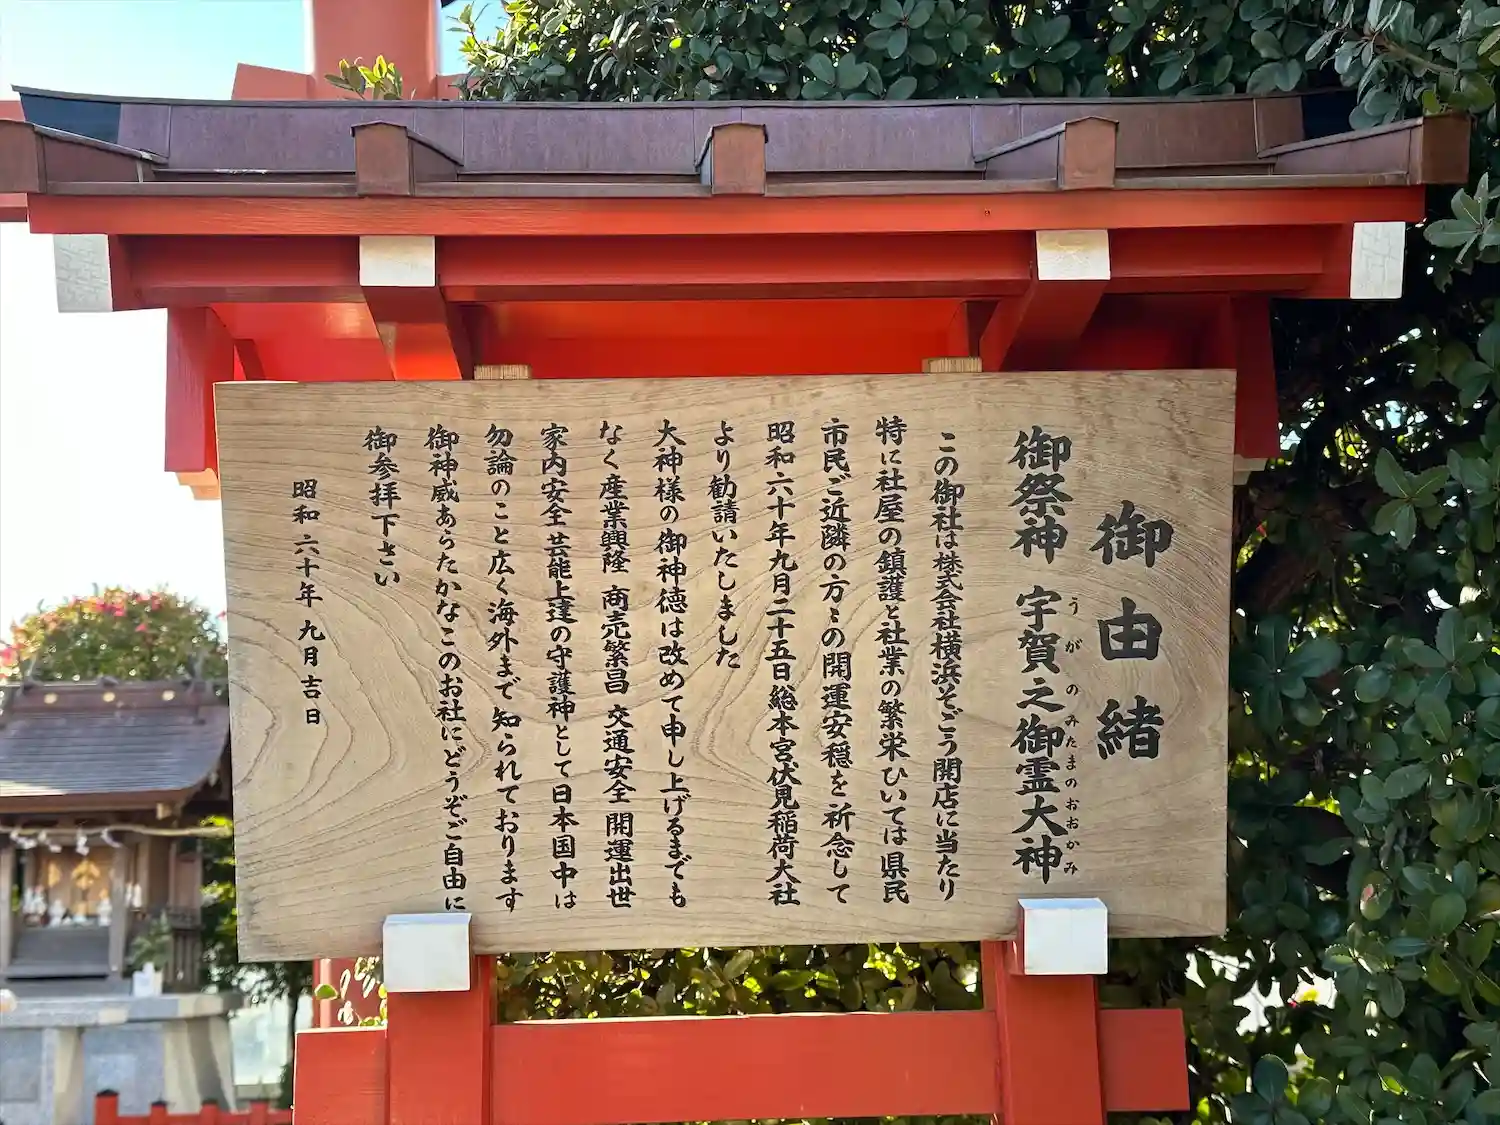 御由緒
御祭神 宇賀之御霊大神
うがのみたまのおおかみ
この御社は株式会社横浜そごう開店に当たり
特に社屋の鎮護と社業の繁栄ひいては県民
市民ご近隣の方〻の開運安穏を祈念して
昭和六十年九月二十五日総本宮伏見稲荷大社
より勧請いたしました
大神様の御神徳は改めて申し上げるまでも
なく産業興隆 商売繁昌 交通安全 開運出世
家内安全 芸能上達の守護神として日本国中は
勿論のこと広く海外まで知られております
御神威あらたかなこのお社にどうぞご自由に
御参拝下さい
昭和六十年 九月吉日